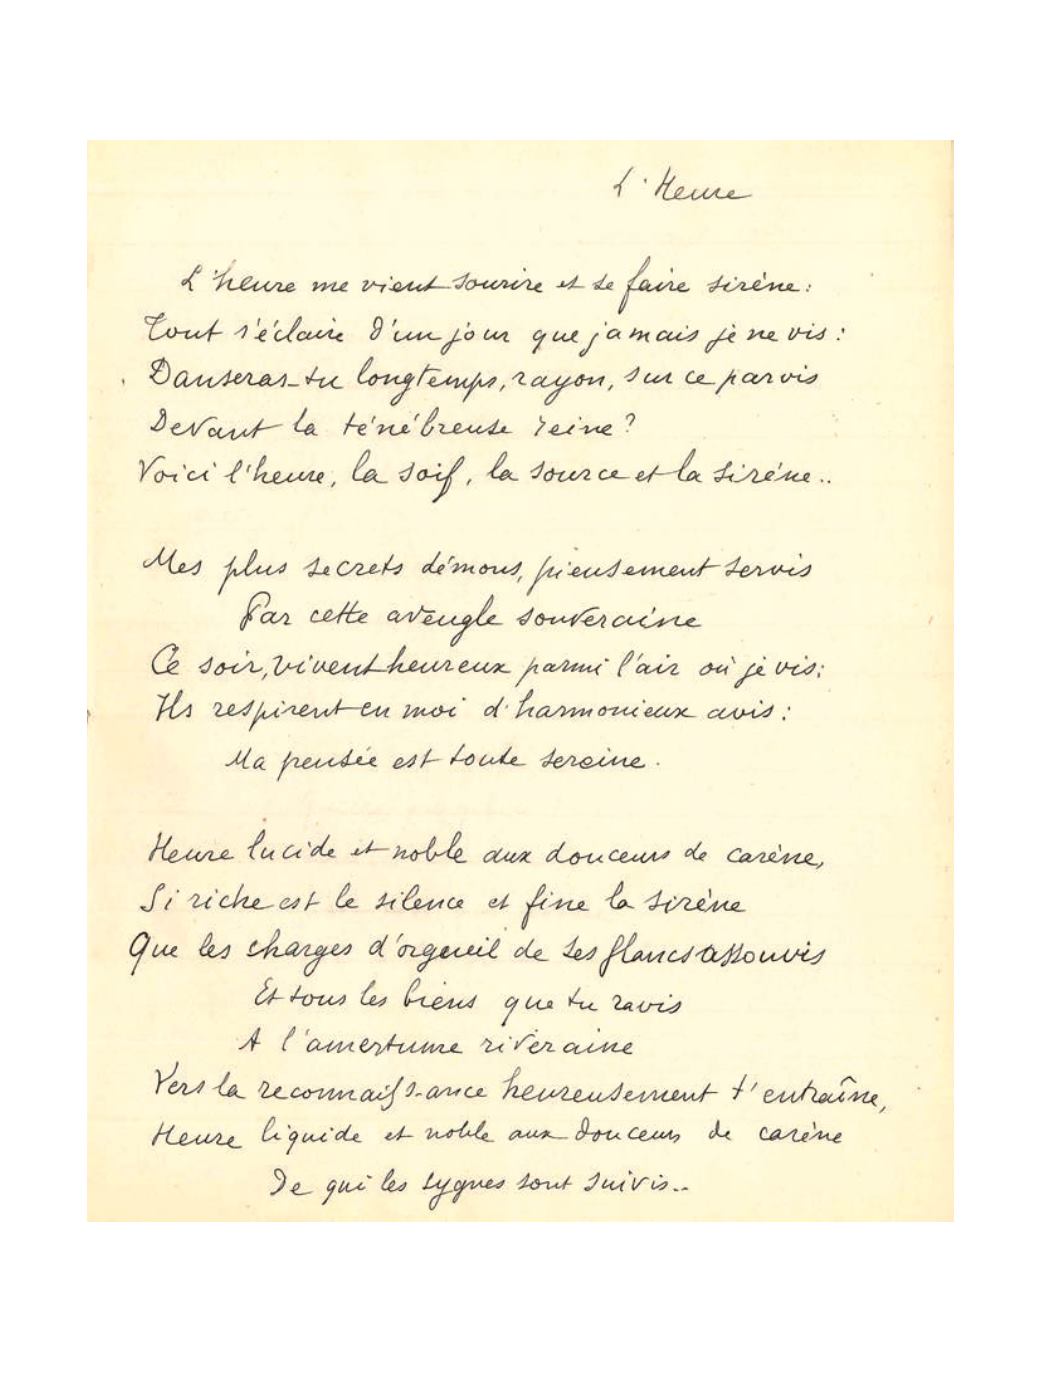 L'Heure
L'heure me vient sourire et se faire sirène:
Tout s'éclaire d'un jour que jamais je ne vis:
Danseras-tu longtemps, rayon, sur ce parvis
Devant la ténébreuse reine?
Voici l'heure, la soif, la source et la sirène..
Mes plus secrets démons, pieusement servis
Par cette aveugle souveraine
Ce soir, vivent heureux parmi l'air où je vis;
Ils respirent en moi d'harmonieux avis:
Ma pensée est toute sereine.
Heure lucide et noble aux douceurs de carène,
Si riche est le silence et fine la sirène
Que les charges d'orgeuil de ses flancs assouvis
Et tous les biens que tu ravis
A l'amertume riveraine
Vers la reconnaissance heureusement t'entraîne,
Heure liquide et noble aux douceurs de carène
De qui les sygnes sont suivis..